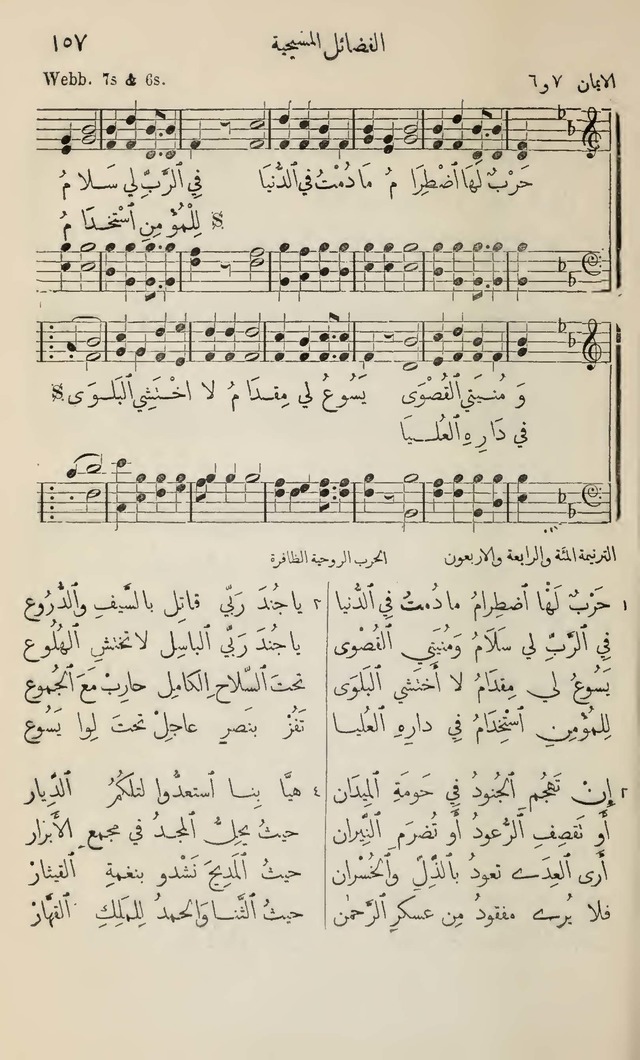 الفضائل المسيحية ١٥٧
الايمان ٧ و ٦ Webb. 7s & 6s.
حَرْبٌ لَهَا اَضْطِرَا مُ مَا دُمْتُ فِي اَلدُّنْيَا فِي اَلرَّبِّ لِي سَـلا مُ
لِلْمُؤْمِنِ اَسْتِخْدَا مُ
وَ مُنْـيَتِي اَلْقُصْوَى يَسُوعُ لِي مِقـدَا مُ لا اخْـتَشِي اَلبَلـوَى
فِي دَارِهِ اَلعُلـــيَا
الترنيمة المئة والرابعة والاربعون الحرب الروحية الظافرة
١ حَرْبٌ لَهَا اَضطِرامُ ما دُمتُ فِي اَلدُّنيا
فِي اَلرَّبِّ لي سَلَامُ وَمُنيَتِي اَلقُصْوَى
يَسُوعُ لي مِقدَامُ لا أَختَشي اَلبَلوَى
لِلمُؤْمِنِ اَسْتِخْدَامُ فِي دارِهِ اَلعُليـا
٢ يا جُندَ رَبِّي قاتِل بالسَّيفِ والدُّروع
يا جُندَ رَبِّي اَلباسِل لا تختشِ اَلهُلُوع
تحتَ اَلسِّلاحِ اَلكامِل حارِبْ مَعَ اَلجُموع
تَفُزْ بنَصرٍ عاجِلْ تحتَ لِوا يَسُوع
٢ إِنْ تَهجُمِ اَلجُنودُ فِي حَومَةِ اَلمِيدَان
أَو تَقصِفِ اَلرُّعودُ أَو تُضرَمِ اَلنِّيران
أَرى اَلعِدَے تعودُ بالذُّلِّ والخُسْران
فلا يُرے مفقودُ مِن عسكرِ اَلرَّحمٰن
٤ هيَّا بِنـا اَستعدُّوا لتلكمُ اَلدِّيار
حيثُ يحلُّ اَلمجـدُ في مجمعِ الأَبرَار
حيثُ اَلمَدِيحَ نَشْدو بنغمةِ اَلقيثارْ
حيثُ اَلثَّنا وَالحمدُ لِلمَلِكِ اَلقهَّارْ